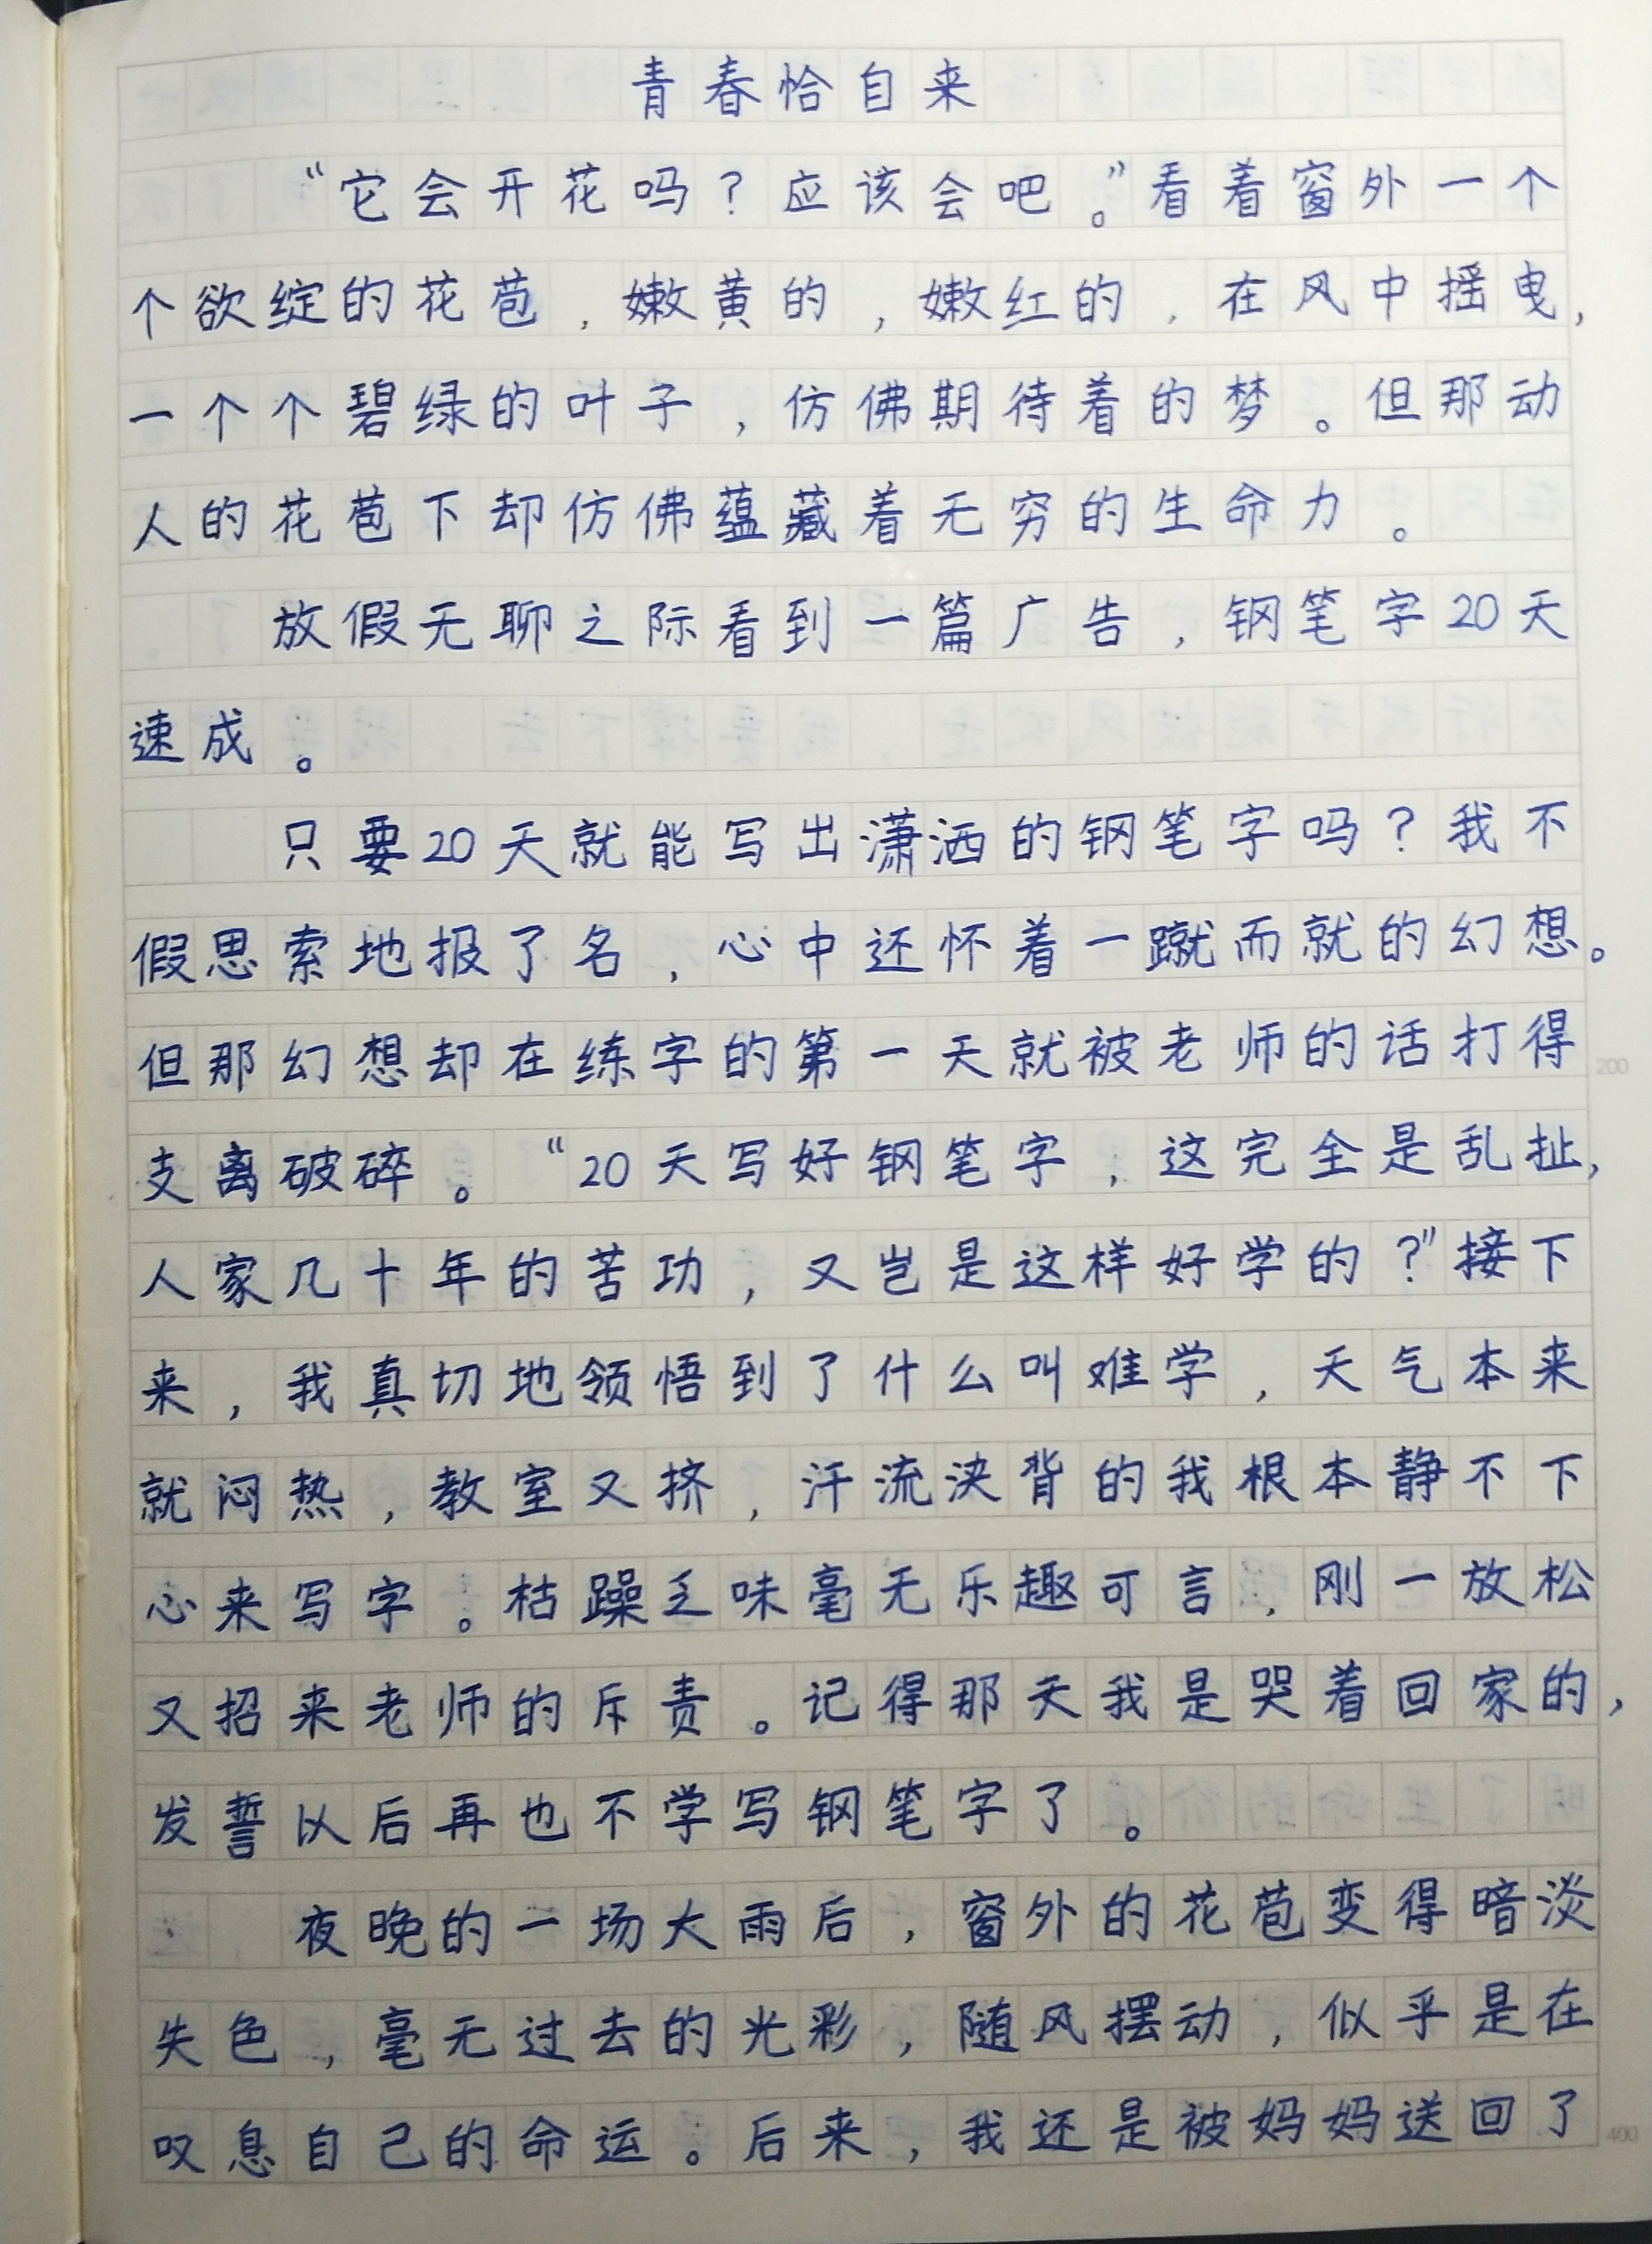 青春恰自来
“它会开花吗？应该会吧。”看着窗外一个
个欲绽的花苞，嫩黄的，嫩红的，在风中摇曳，
一个个碧绿的叶子，仿佛期待着的梦。但那动
人的花苞下却仿佛蕴藏着无穷的生命力。
放假无聊之际看到一篇广告，钢笔字20天
速成。
只要20天就能写出潇洒的钢笔字吗？我不
假思索地报了名，心中还怀着一蹴而就的幻想。
但那幻想却在练字的第一天就被老师的话打得
支离破碎。“20天写好钢笔字，这完全是乱扯，
人家几十年的苦功，又岂是这样好学的？”接下
来，我真切地领悟到了什么叫难学，天气本来
就闷热，教室又挤，汗流决背的我根本静不下
心来写字。枯躁乏味毫无乐趣可言，刚一放松
又招来老师的斥责。记得那天我是哭着回家的，
发誓以后再也不学写钢笔字了。
夜晚的一场大雨后，窗外的花苞变得暗淡
失色，毫无过去的光彩，随风摆动，似乎是在
叹息自己的命运。后来，我还是被妈妈送回了
200
400